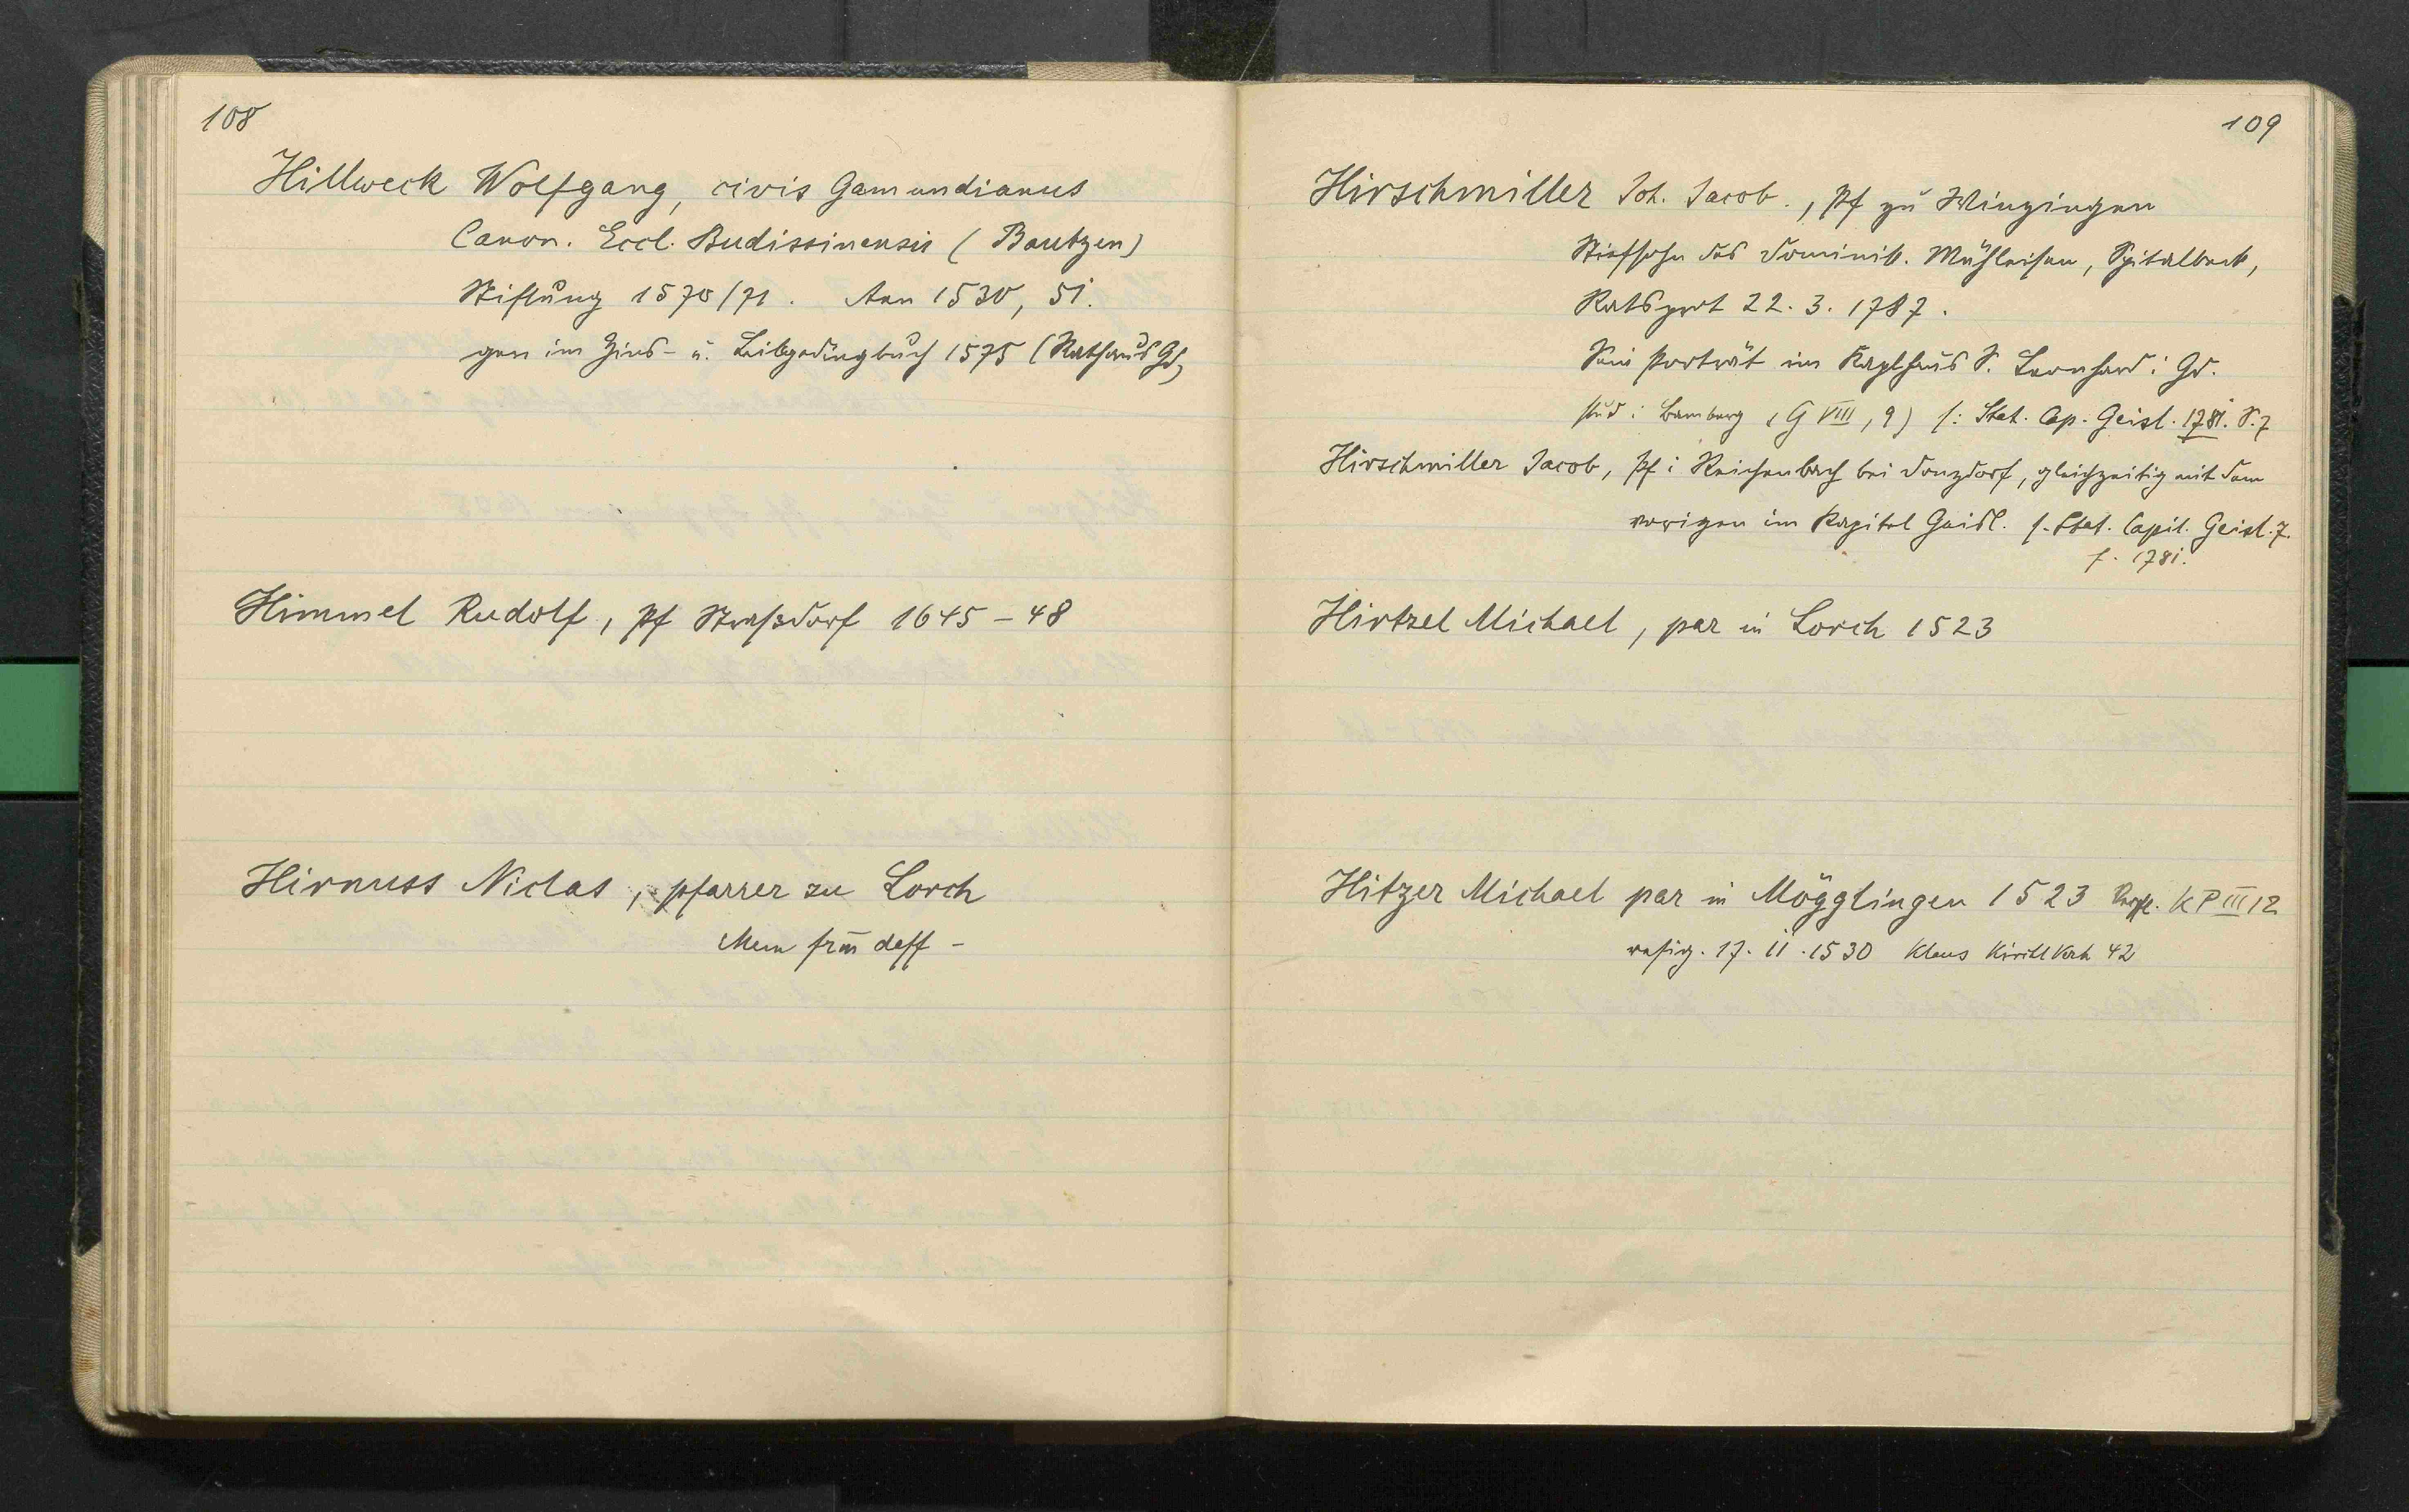 108
Hillweck Wolfgang, civis Gamundianus
Canon. Eccl. Budissinensis (Bautzen)
Stiftung 1570/71. Ann 1530, 51.
gen im Zins- u. Leibgedingbuch 1575 (Rathaus Gd)
Himmel Rudolf, Pf Straßdorf 1645-48
Hirnuss Niclas, pfarrer zu Lorch
Mem frm deff -
109
Hirschmiller Joh. Jacob., Pf zu Winzingen
Stiefsohn des Dominik. Mühleisen, Spitalbeck,
Ratsprot 22. 3. 1787.
Sein Porträt im Kaplhaus S. Leonhard i Gd.
stud i Bamberg (G VIII, 9) s: Stat. Cap. Geisl. 1781. S. 7
Hirschmiller Jacob, Pf i Reichenbach bei Donzdorf, gleichzeitig mit dem
vorigen im Kapitel Geisl. s. Stat. Capit. Geisl. 7.
f. 1781.
Hirtzel Michael, par in Lorch 1523
Hitzer Michael par in Mögglingen 1523 KP III 12
resig. 17. 11. 1530 Klaus 42